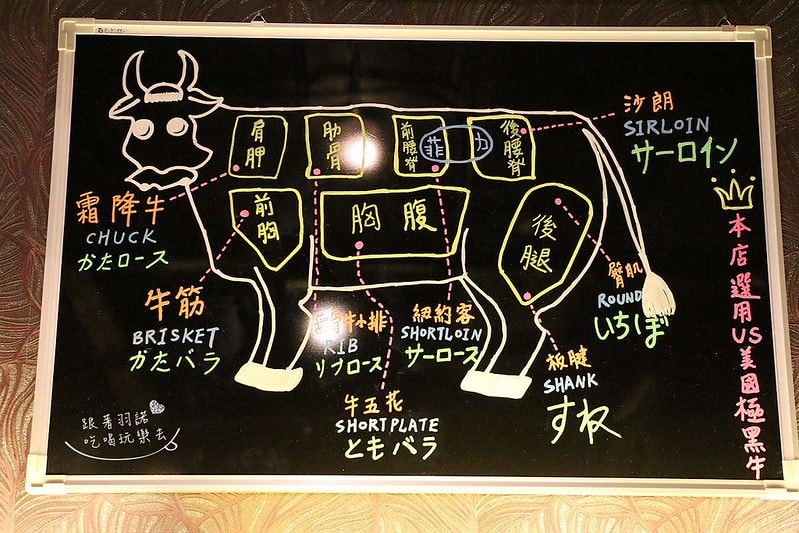 肩胛
肋骨
前腰脊
菲
力
後腰脊
前胸
胸腹
後腿
沙朗
SIRLOIN
サーロイン
霜降牛
CHUCK
かたロース
牛筋
BRISKET
かたバラ
牛小排
RIB
リブロース
紐約客
SHORTLOIN
サーロース
牛五花
SHORTPLATE
ともバラ
臀肌
ROUND
いちぼ
板腱
SHANK
すね
本店選用US美國極黑牛
跟著羽諾
吃喝玩樂去